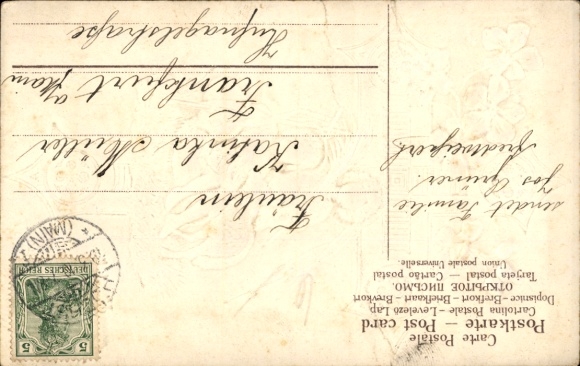 Carte Postale
Postkarte — Post card
Cartolina Postale – Levelező Lap
Dopisnice – Brefkort – Briefkaart – Brevkort
ОТКРЫТОЕ ПИСЬМО.
Tarjeta postal — Cartão postal
Union postale Universelle.
5
DEUTSCHES REICH
(MAIN)
sendet Familie
Jos Grüner.
Fräulein
Katinka Müller
Frankfurt a/
Main
Hufnagelstraße